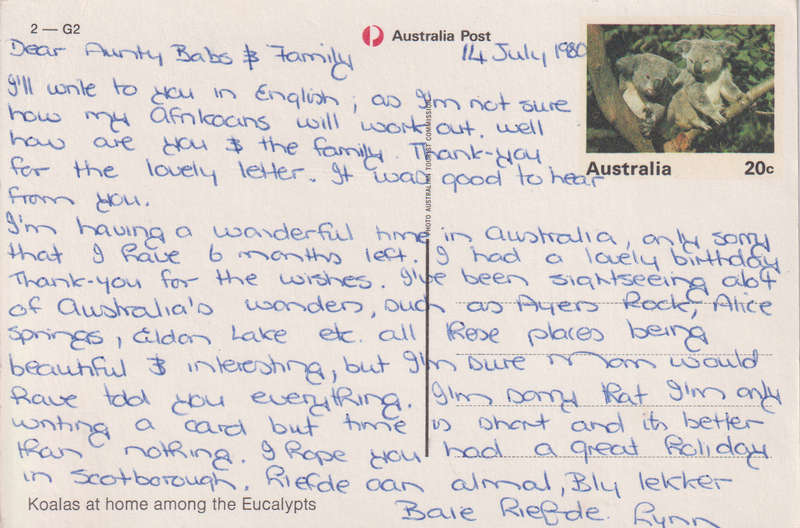 2 — G2
Australia Post
Dear Aunty Babs & Family
14 July 1980
I'll write to you in English, as I'm not sure
how my Afrikaans will work out. well
how are you & the family. Thank-you
for the lovely letter. It was good to hear
from you.
I'm having a wonderful time in Australia, only sorry
that I have 6 months left. I had a lovely birthday
Thank-you for the wishes. I've been sightseeing alot
of Australia's wonders, such as Ayers Rock, Alice
Springs, Eildon Lake etc. all these places being
beautiful & interesting, but I'm sure Mom would
have told you everything. I'm sorry that I'm only
writing a card but time is short and its better
than nothing. I hope you had a great holiday
in Scotborough. Liefde aan almal, Bly lekker
Baie Liefde. Lynn
Australia 20c
PHOTO AUSTRALIAN TOURIST COMMISSION
Koalas at home among the Eucalypts